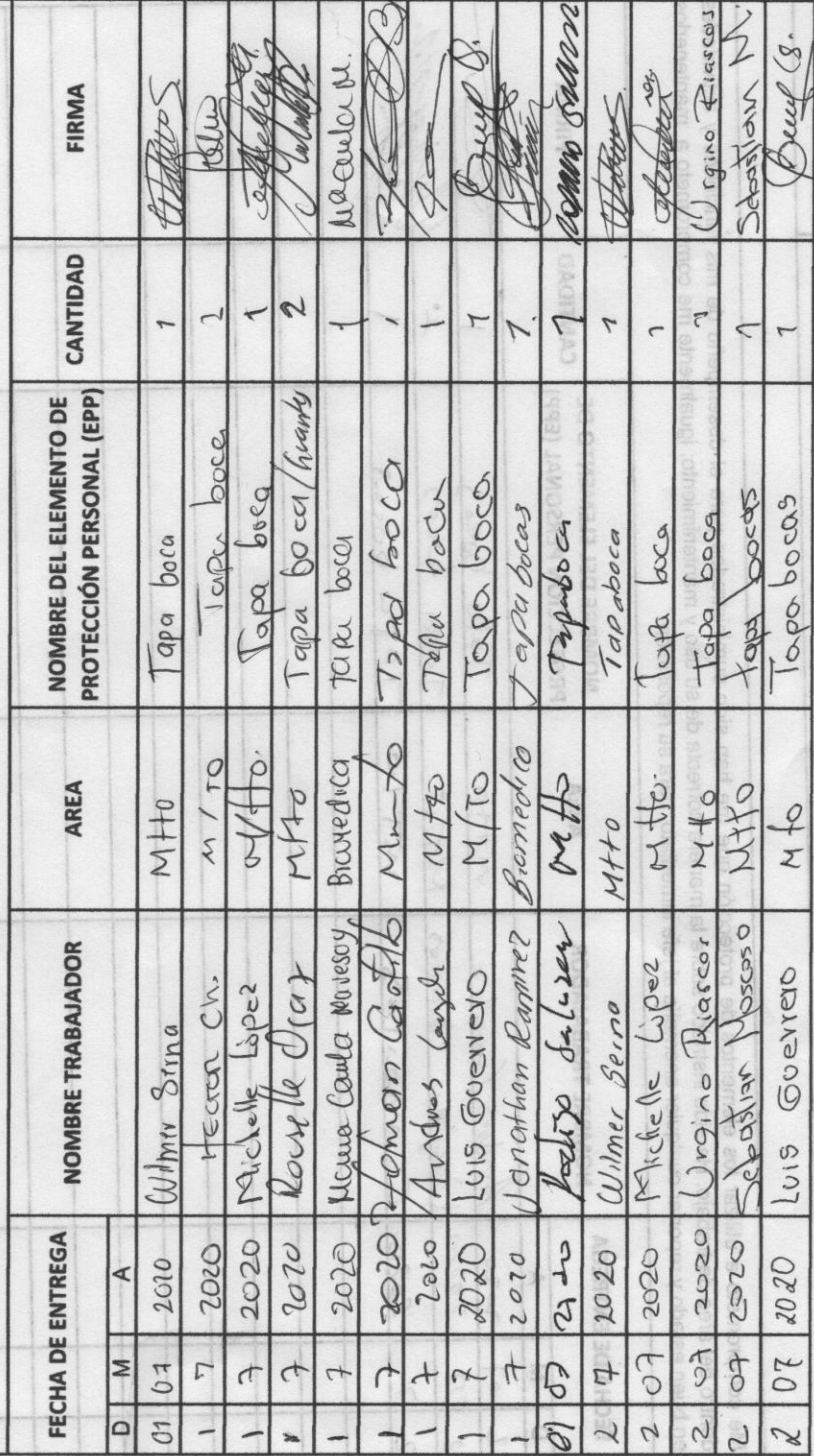 FECHA DE ENTREGA NOMBRE TRABAJADOR AREA NOMBRE DEL ELEMENTO DE PROTECCIÓN PERSONAL (EPP) CANTIDAD FIRMA
D M A
01 07 2020 Wilmer Serna Mtto Tapa boca 1
1 7 2020 Hector Ch. M/TO Tapa boca 1
1 7 2020 Michelle López Mtto. Tapa boca 1
1 7 2020 Diaz Mtto Tapa boca/Guantes 2
1 7 2020 Maria Carla Biomedica Tapa boca 1 Ma Carla M.
1 7 2020 Yoman Castillo Tapa boca 1
1 7 2020 Andres Mtto Tapa boca 1
1 7 2020 LUIS GUERRERO M/TO Tapa boca. 1
1 7 2020 Jonathan Ramirez Biomedico Tapabocas 1.
01 07 2020 Rodrigo Salazar Mtto Tapaboca 1
2 7 2020 Wilmer Serna Mtto Tapaboca 1
2 07 2020 Michelle López Mtto. Tapa boca 1
2 07 2020 Urgino Riascos Mtto Tapa boca 1 Urgino Riascos
2 07 2020 Sebastian Moscoso Mtto Tapa bocas 1 Sebastian M.
2 07 2020 LUIS GUERRERO Mto Tapa bocas 1